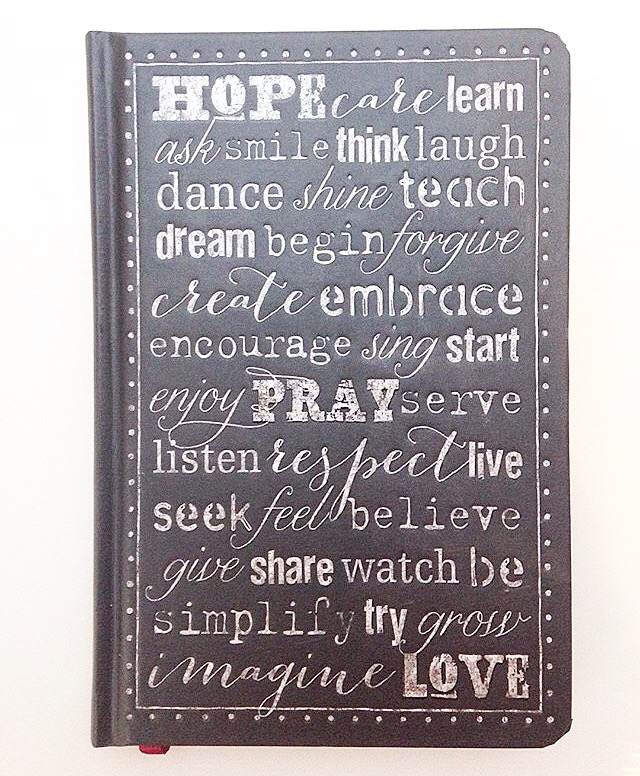 HOPE care learn
ask smile think laugh
dance shine teach
dream begin forgive
create embrace
encourage sing start
enjoy PRAY serve
listen respect live
seek feel believe
give share watch be
simplify try grow
imagine LOVE